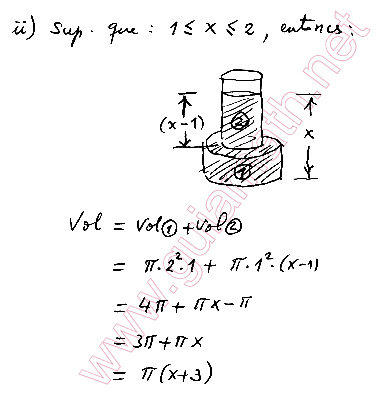 ii) Sup. que : 1 ≤ x ≤ 2 , entonces :
(x-1)
②
x
①
Vol = Vol① + Vol②
= π·2²·1 + π·1²·(x-1)
= 4π + πx - π
= 3π + πx
= π(x+3)
www.guiamath.net